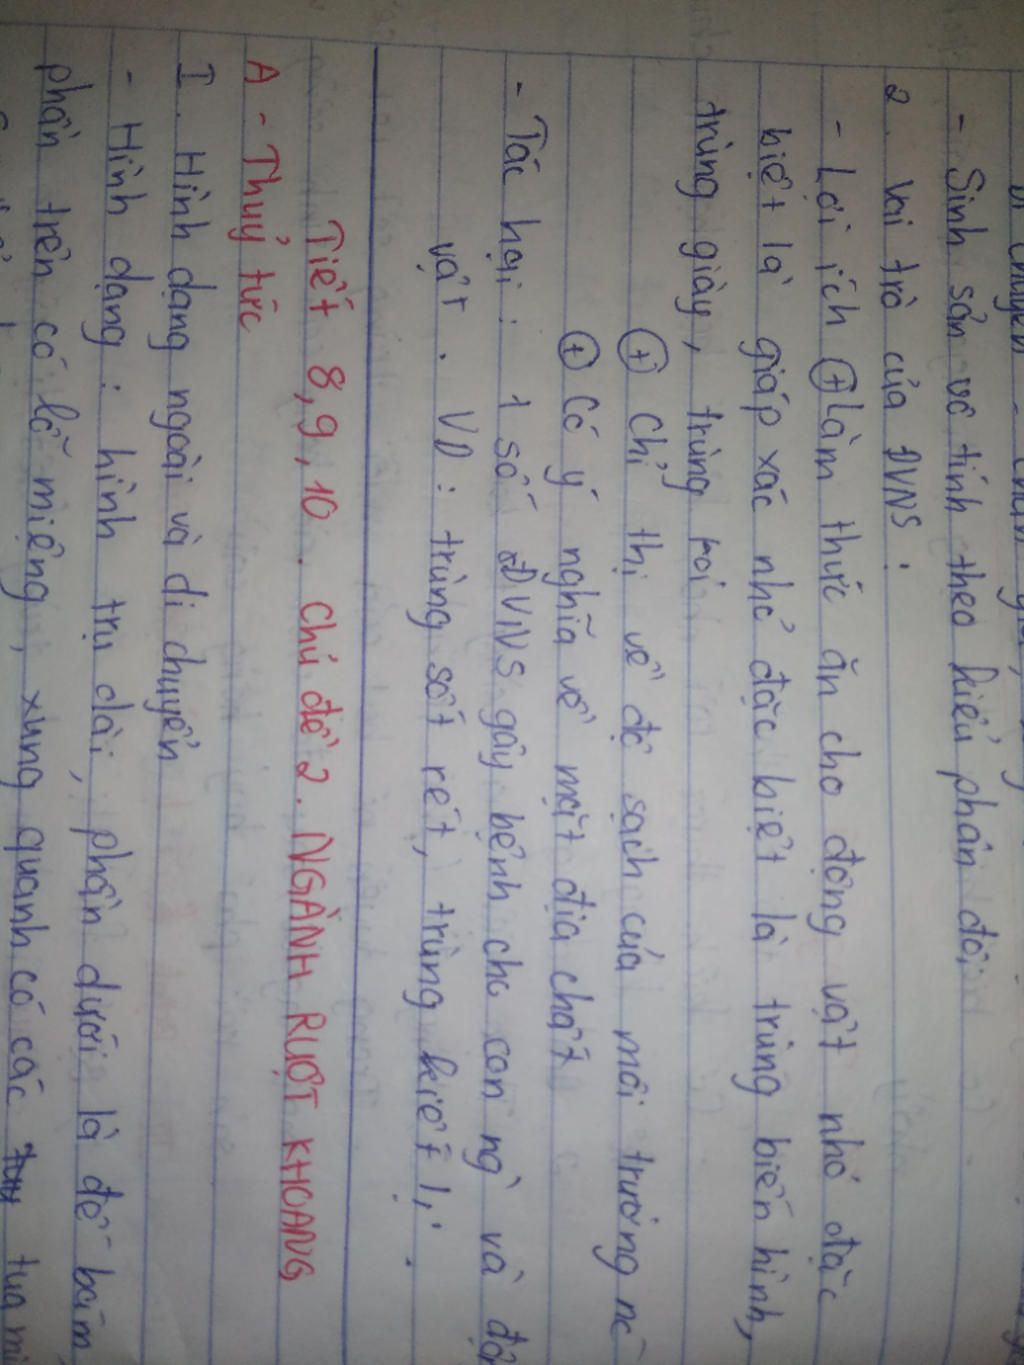 - Sinh sản vô tính theo kiểu phân đôi
2. Vai trò của ĐVNS:
- Lợi ích ⊕ Làm thức ăn cho động vật nhỏ đặc
biệt là giáp xác nhỏ đặc biệt là trùng biến hình,
trùng giày, trùng roi
⊕ Chỉ thị về độ sạch của môi trường nc
⊕ Có ý nghĩa về mặt địa chất
- Tác hại: 1 số ĐVNS gây bệnh cho con ng' và
vật. VD: trùng sốt rét, trùng kiết lị.
Tiết 8,9,10. Chủ đề 2. NGÀNH RUỘT KHOANG
A - Thuỷ tức
I. Hình dạng ngoài và di chuyển
- Hình dạng: hình trụ dài, phần dưới là đế bám,
phần trên có lỗ miệng, xung quanh có các tua